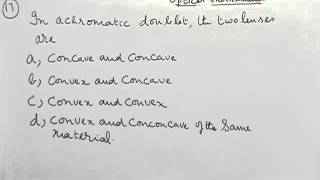 17
In achromatic doublet, the two lenses
are
a, Concave and Concave
b, Convex and Concave
c, Convex and Convex
d, Convex and Conconcave of the Same
material.